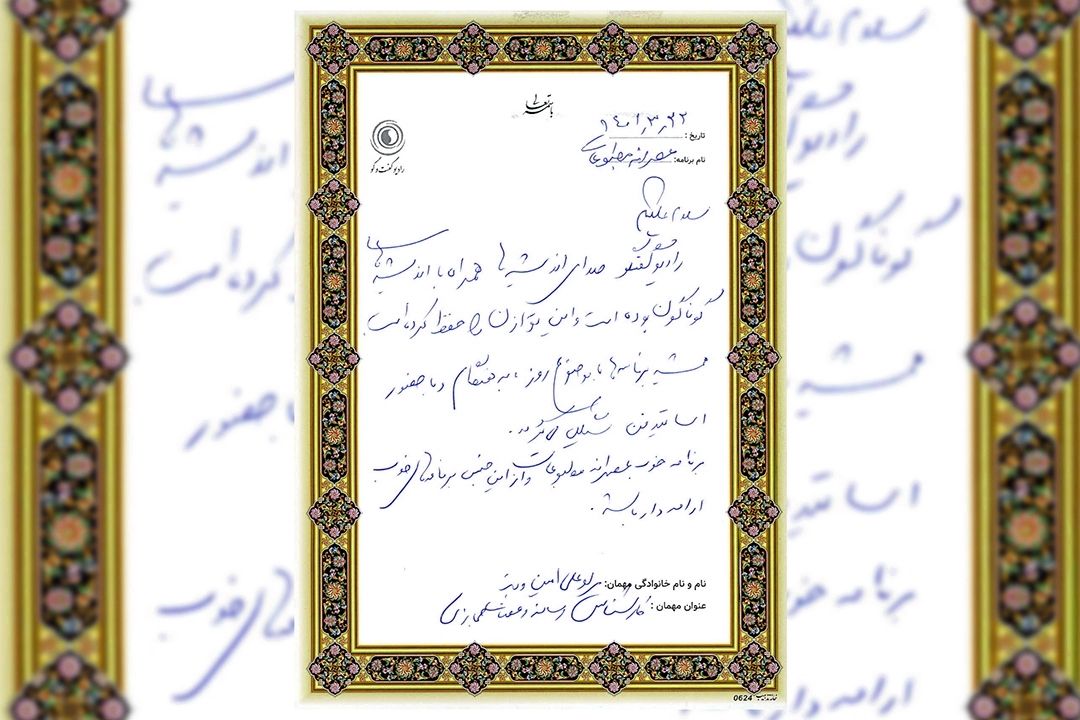 باسمه تعالی
رادیو گفت و گو
تاریخ: ۱۴۰۱٫۳٫۲۲
نام برنامه: عصرانه مطبوعاتی
سلام علیکم
رادیو گفتگو صدای اندیشه ها همراه با اندیشه‌های
گوناگون بوده است و این توازن را حفظ کرده است
همیشه برنامه‌ها با موضوع روز، به هنگام و با حضور
اساتید فن تشکیل می‌گردد.
برنامه خوب عصرانه مطبوعات و از این جنس برنامه‌های خوب
ادامه دار باشد.
نام و نام خانوادگی مهمان: علی امین
عنوان مهمان: کارشناس رسانه و
0624